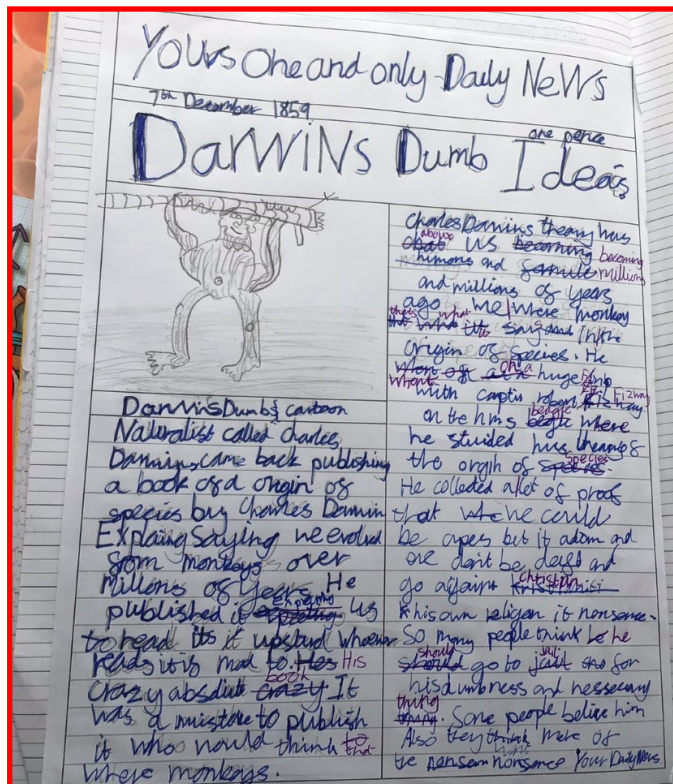 Yours One and only Daily News
7th December 1859
one pence
Darwins Dumb Ideas
Darwins Dumb cartoon
Naturalist called charles
Darwin, came back publishing
a book of a origin of
species buy Charles Darwin
Explaing saying we evolved
from monkeys over
millons of years. He
published it expecting us
to read its it upsburd whoever
reads it is mad to. His
crazy absolute book It
was a mistake to publish
it who would think that
where monkeys.
Charles Darwins theary hus
above us becoming
humons and millions
and millions of years
ago we where monkey
thats what it say in the
origin of species. He
Whent on a huge
with captin robert Fizhay
on the hms beagle where
he studed hus theary of
the orgin of species
He colleded alot of proof
that we could
be apes but it adom and
eve don't be daft and
go against christian
his own religan it nonsense.
So many people think he
should go to jail for
his dumbness and
thing. Some people belive him
Also they think more of
the nonsense Your Daily News